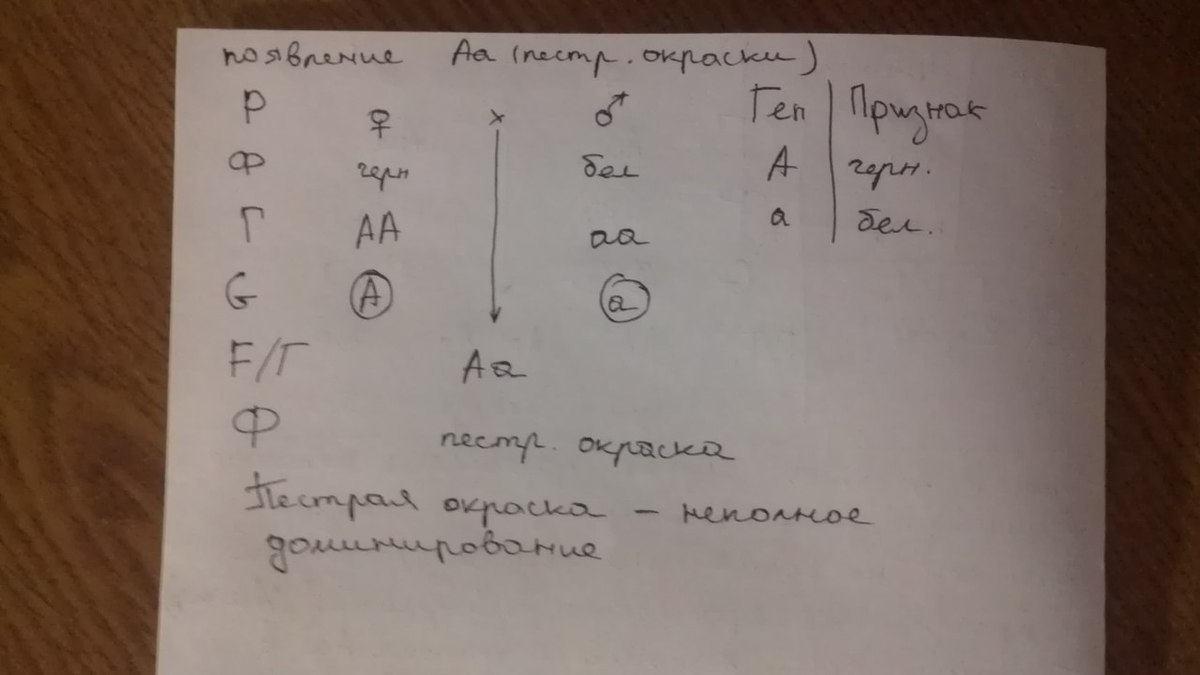 появление Аа (пестр. окраски)
Р ♀ × ♂ Ген | Признак
Ф черн бел А черн.
Г АА аа а бел.
G А а
F/Г Аа
Ф пестр. окраска
Пестрая окраска – неполное
доминирование